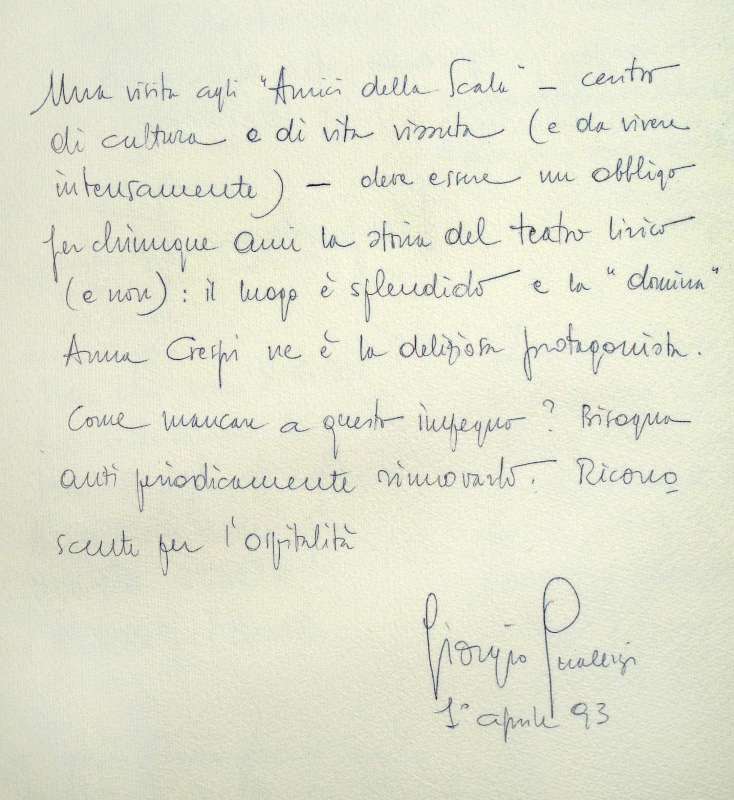 Una visita agli "Amici della Scala" – centro
di cultura e di vita vissuta (e da vivere
intensamente) – deve essere un obbligo
per chiunque ami la storia del teatro lirico
(e non): il luogo è splendido e la "domina"
Anna Crespi ne è la deliziosa protagonista.
Come mancare a questo impegno? Bisogna
anzi periodicamente rinnovarlo. Ricono
scente per l'ospitalità
Giorgio Gualerzi
1° aprile 93